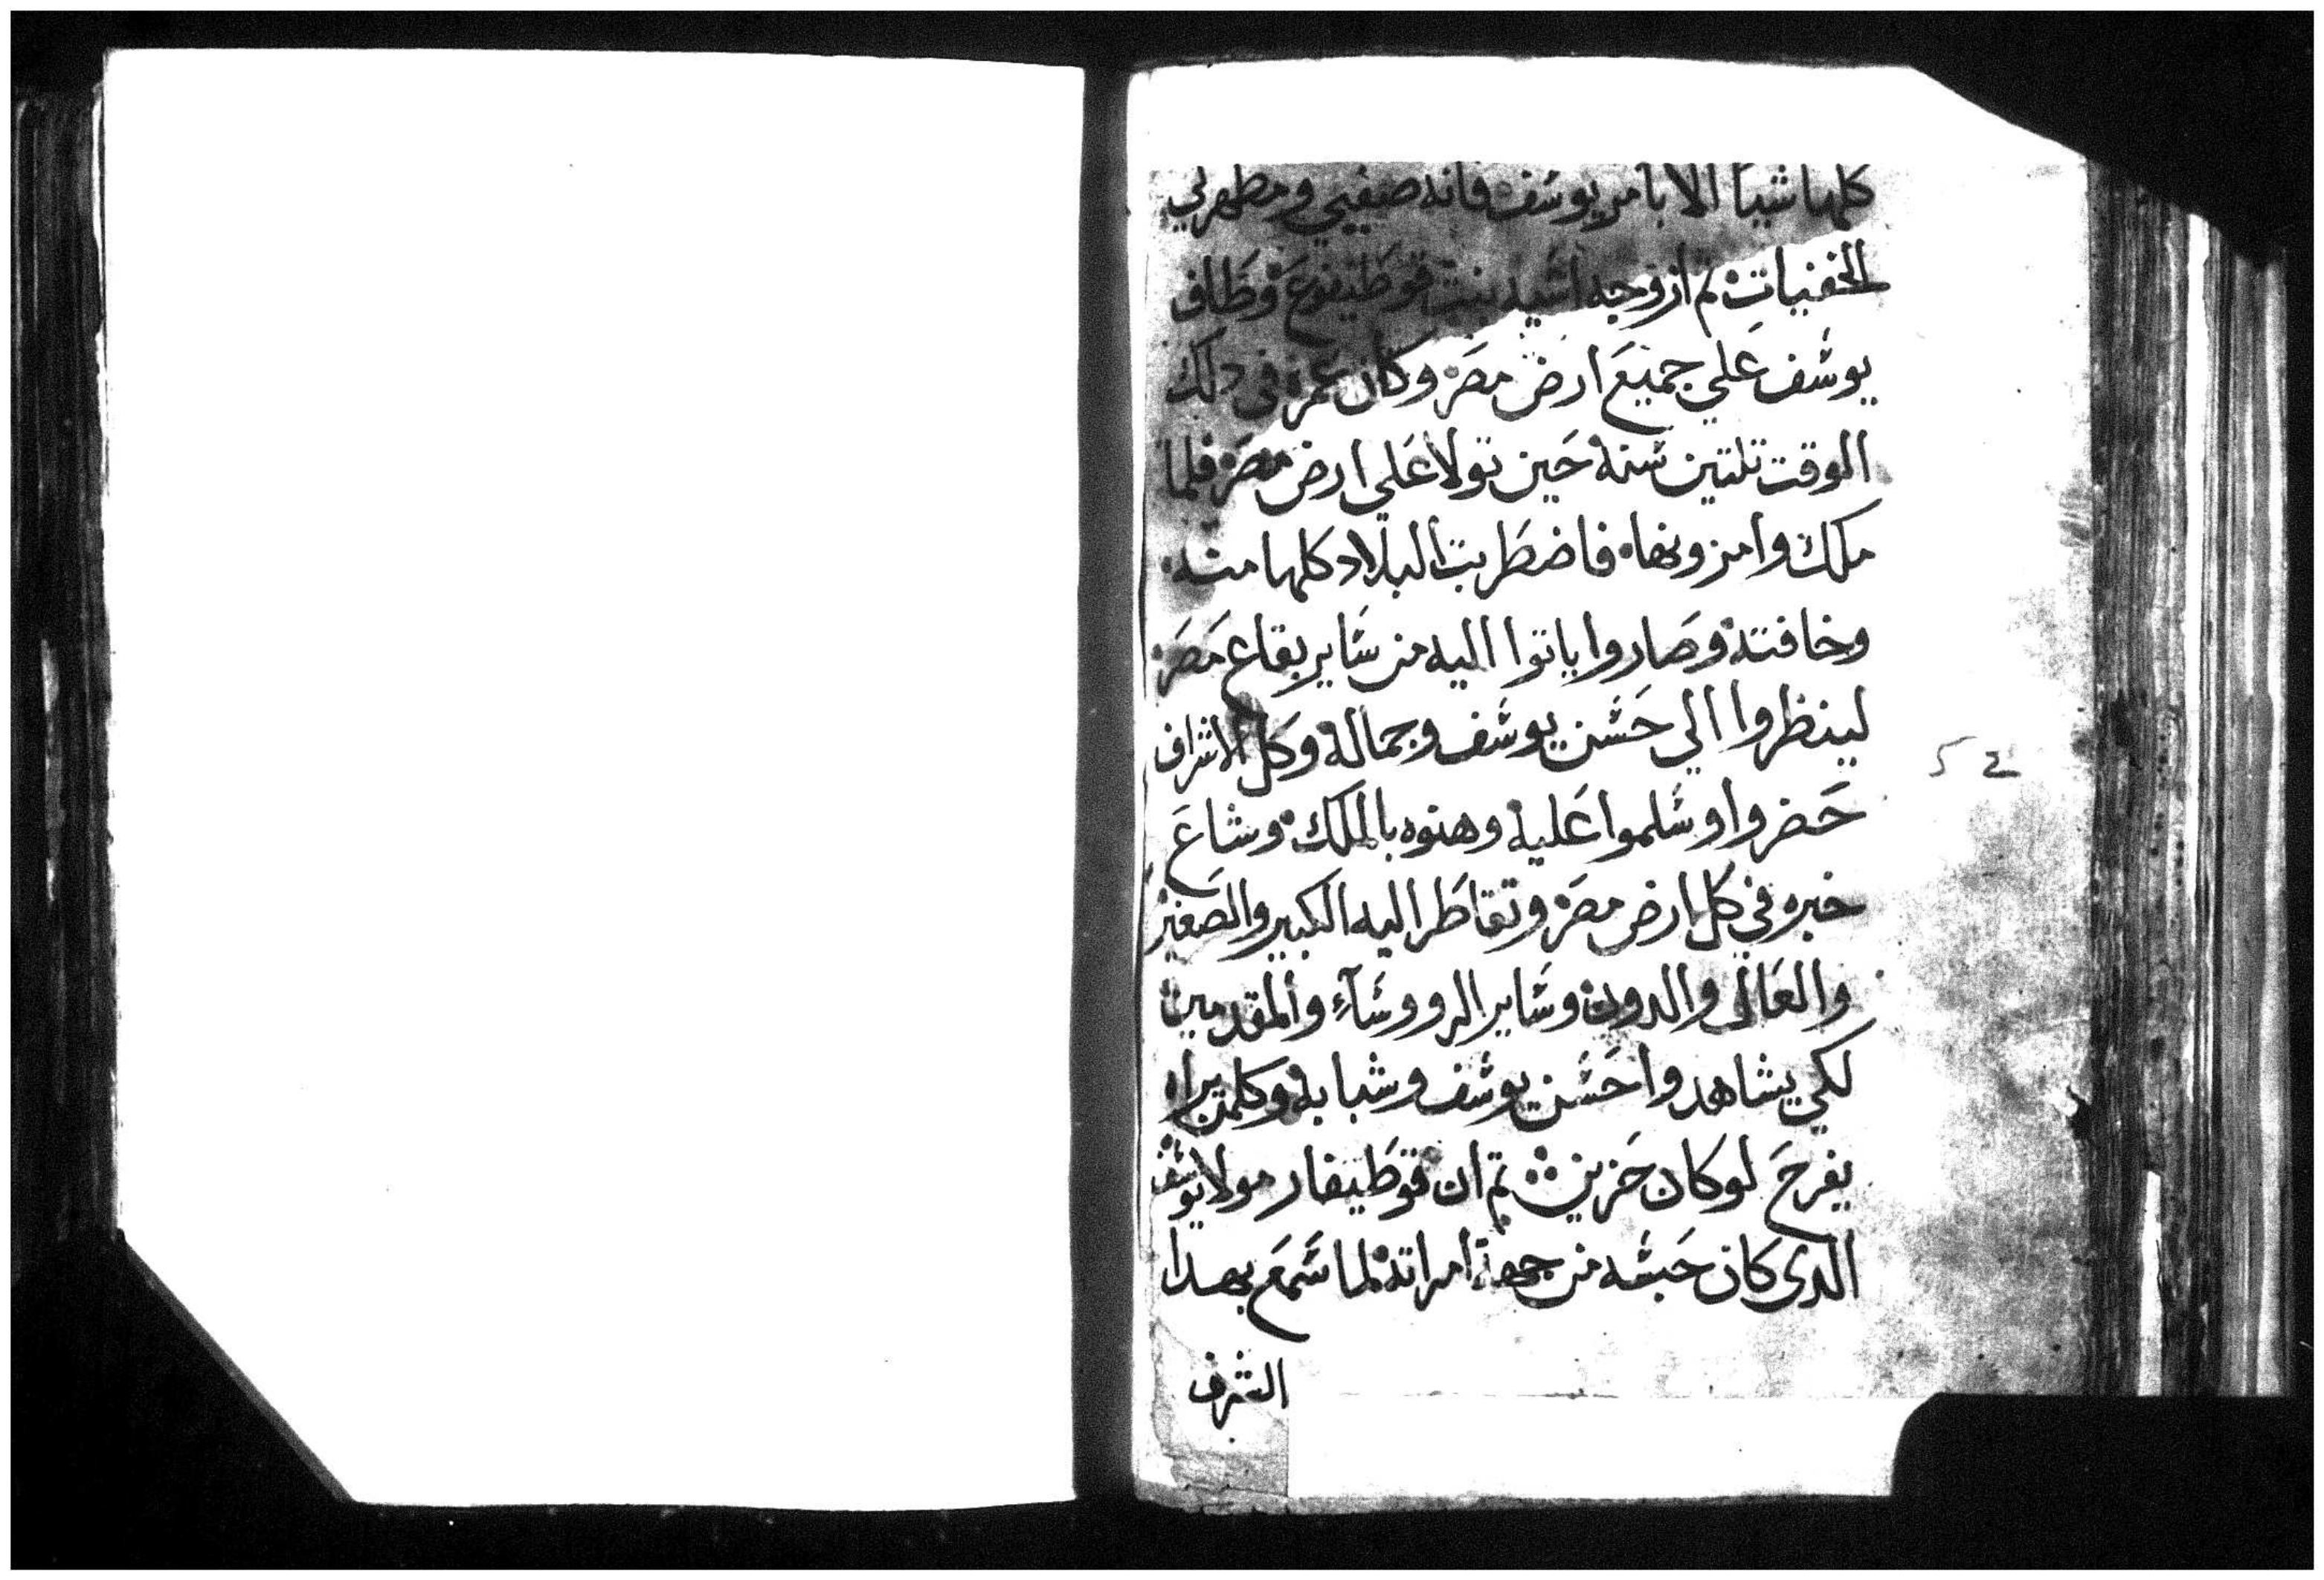 كلها شيا الا بامر يوسف فانه صفيي ومظهر لي
الخفيات ثم ازوجه اسيه بنت قوطيفوع وطاف
يوسف علي جميع ارض مصر وكان عمره في دلك
الوقت تلتين سنة حين تولا علي ارض مصر فلما
ملك وامر ونهاه فاضطربت البلاد كلها منه
وخافته وصاروا ياتوا اليه من ساير بقاع مصر
لينظروا الي حسن يوسف وجماله وكل الاشراف
حضروا وسلموا عليه وهنوه بالملك وشاع
خبره في كل ارض مصر وتقاطر اليه الكبير والصغير
والعالي والدون وساير الرووسآء والمقدمين
لكي يشاهدوا حسن يوسف وشبابه وكلمن يراه
يفرح لو كان حزين ثم ان قوطيفار مولا يوسف
الدي كان حبسه من جهة امراته لما سمع بهدا
الشرف